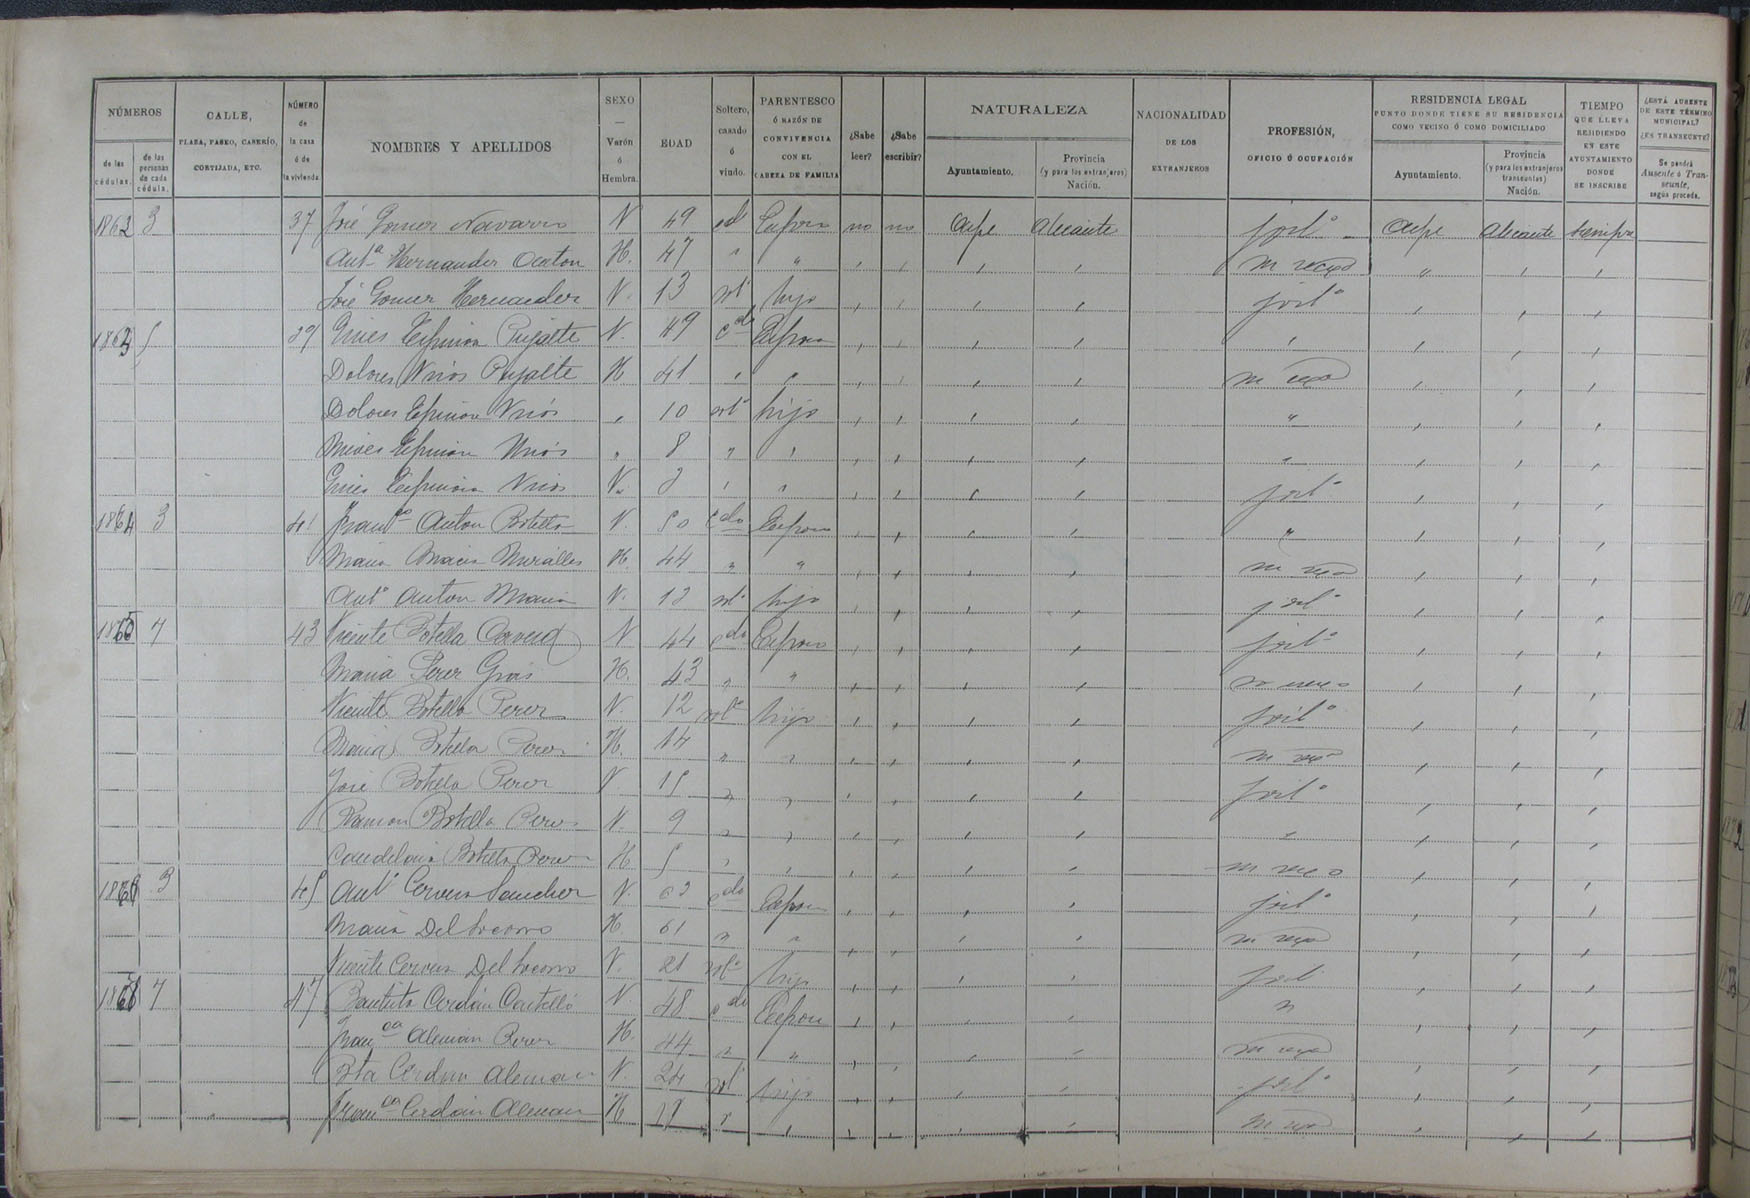 NÚMEROS
de las cédulas.
de las personas de cada cédula.
CALLE,
PLAZA, PASEO, CASERÍO,
CORTIJADA, ETC.
NÚMERO
de
la casa
ó de
la vivienda.
NOMBRES Y APELLIDOS
SEXO
—
Varón
ó
Hembra.
EDAD
Soltero,
casado
ó
viudo.
PARENTESCO
Ó RAZÓN DE
CONVIVENCIA
CON EL
CABEZA DE FAMILIA
¿Sabe
leer?
¿Sabe
escribir?
NATURALEZA
Ayuntamiento.
Provincia
(y para los extranjeros)
Nación.
NACIONALIDAD
DE LOS
EXTRANJEROS
PROFESIÓN,
OFICIO Ó OCUPACIÓN
RESIDENCIA LEGAL
PUNTO DONDE TIENE SU RESIDENCIA
COMO VECINO Ó COMO DOMICILIADO
Ayuntamiento.
Provincia
(y para los extranjeros
transeuntes)
Nación.
TIEMPO
QUE LLEVA
RESIDIENDO
EN ESTE
AYUNTAMIENTO
DONDE
SE INSCRIBE
¿ESTÁ AUSENTE
DE ESTE TÉRMINO
MUNICIPAL?
¿ES TRANSEUNTE?
Se pondrá
Ausente ó Tran-
seunte,
según proceda.
1862 3 37 José Gomez Navarro V 49 cdo Esposo no no Aspe Alicante jorlo Aspe Alicante siempre
Anta Hernandez H. 47 " " , , , , " , ,
José Gomez Hernandez V. 13 solt hijo , , , , jorlo , , ,
1863 5 39 Gines Espinosa Pujalte V. 49 cdo Esposo , , , , , , , ,
Dolores Pujalte H 41 , " , , , , , , ,
Dolores Espinosa , 10 solt hijo , , , , " , , ,
Espinosa " 8 " , , , , , " , , ,
Gines Espinosa V. 3 , " , , , , jorlo , , ,
1864 3 41 Franco Anton Botella V. 50 cdo Esposo , , , , " , , ,
Maria Macia Miralles H. 44 " " , , , , , , ,
Anto Anton Macia V. 13 solo hijo , , , , jorlo , , ,
1865 7 43 Vicente Botella V 44 cdo Esposo , , , , jorlo , , ,
Maria Perez H. 43 " " , , , , , , ,
Vicente Botella Perez V. 12 solo hijo , , , , jorlo , , ,
Maria Botella Perez H. 14 " " , , , , , , ,
José Botella Perez V 15 " " , , , , jorlo , , ,
Ramon Botella Perez V. 9 " " , , , , " , , ,
Candelaria Botella Perez H 5 , , , , , , , , ,
1866 3 45 Anto Cervera Sanchez V. 63 cdo Esposo , , , , jorlo , , ,
Maria Del Socorro H 61 " " , , , , , , ,
Vicente Cervera Del Socorro V. 21 solo hijo , , , , jorl , , ,
1867 7 47 Bautista Cerdán Castelló V. 48 cdo Esposo , , , , " , , ,
Franca Alemán Perez H. 44 " " , , , , , , ,
Bta Cerdán Aleman V 24 solt hijo , , , , jorlo , , ,
Franca Cerdán Aleman H , , , , , , , , ,